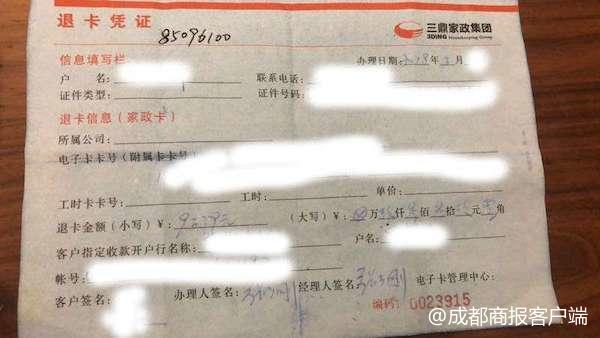 退卡凭证
85096100
三鼎家政集团
3DING Housekeeping Group
信息填写栏 办理日期: 年 月
户 名: 联系电话:
证件类型: 证件号码:
退卡信息（家政卡）
所属公司:
电子卡卡号（附属卡卡号）
工时卡卡号: 工时: 单价:
退卡金额（小写）¥: （大写）¥: 万 仟 佰 拾 元 角
客户指定收款开户行名称: 户名:
帐号:
客户签名: 办理人签名: 经理人签名: 电子卡管理中心:
编码: 0023915
@成都商报客户端